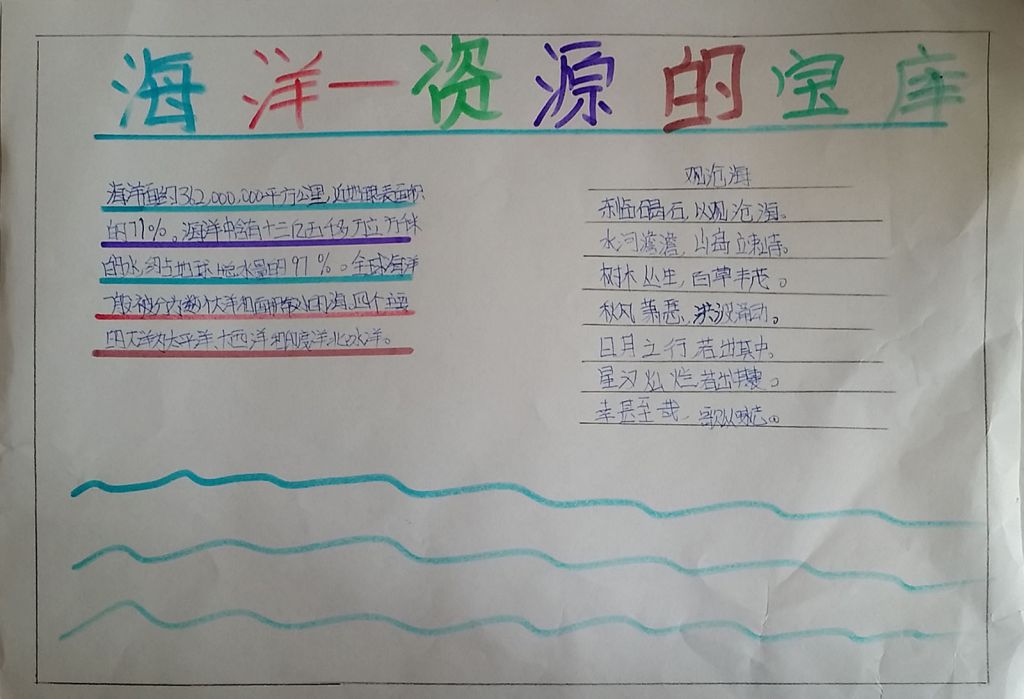 海洋一资源的宝库
海洋面约362,000,000平方公里,近地球表面积
的71%。海洋中含有十三亿五千多万立方千米
的水,约占地球上总水量的97%。全球海洋
一般被分为数个大洋和面积较小的海,四个主要
的大洋为太平洋、大西洋和印度洋北冰洋。
观沧海
东临碣石,以观沧海。
水河澹澹,山岛竦峙。
树木丛生,百草丰茂。
秋风萧瑟,洪波涌动。
日月之行,若出其中。
星汉灿烂,若出其里。
幸甚至哉,歌以咏志。